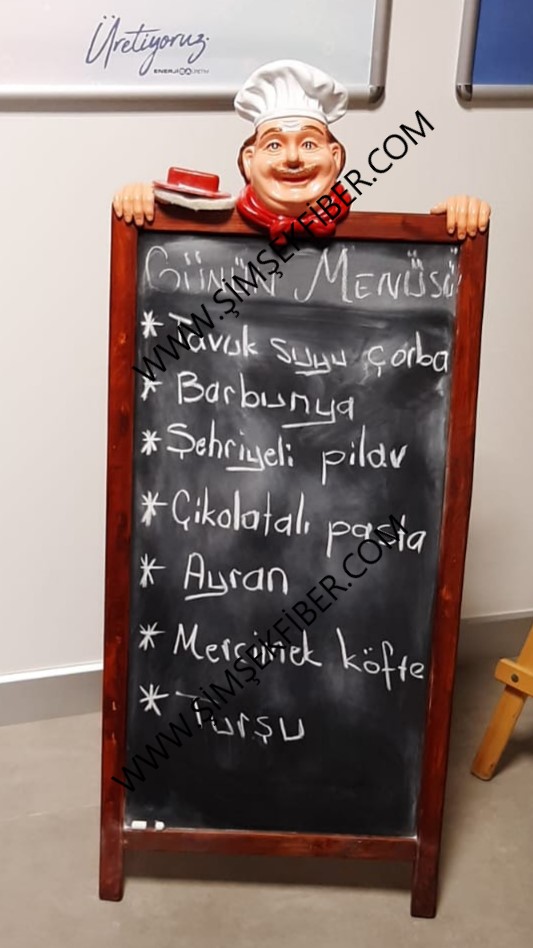 Üretiyoruz.
ENERJİSA ÜRETİM
GÜNÜN MENÜSÜ
* Tavuk suyu çorba
* Barbunya
* Şehriyeli pilav
* Çikolatalı pasta
* Ayran
* Mercimek köfte
* Turşu
WWW.ŞİMŞEKFİBER.COM
WWW.ŞİMŞEKFİBER.COM